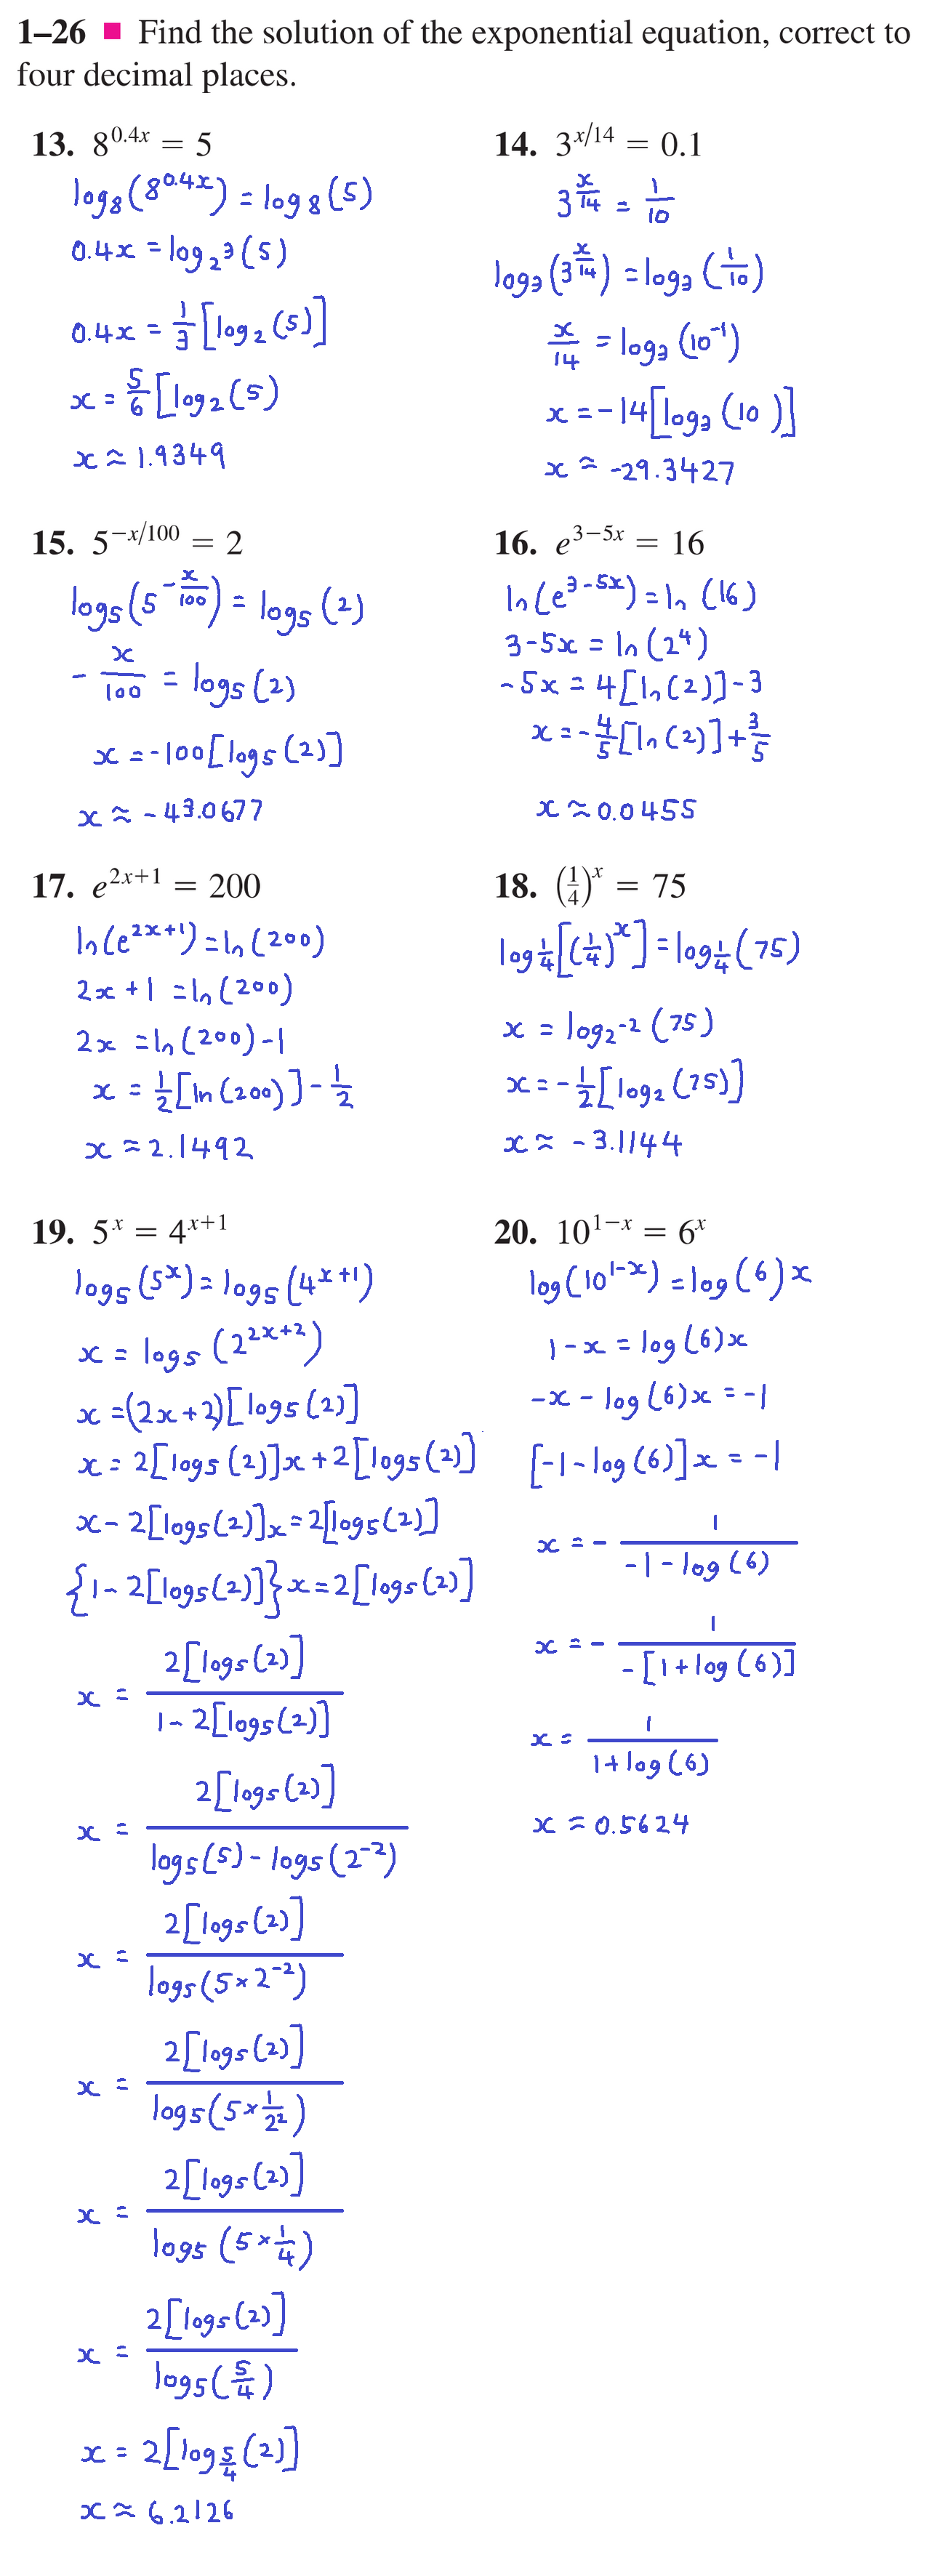 1–26 ■ Find the solution of the exponential equation, correct to
four decimal places.
13. 8^{0.4x} = 5
log₈(8^{0.4x}) = log₈(5)
0.4x = log_{2^3}(5)
0.4x = 1/3[log₂(5)]
x = 5/6[log₂(5)
x ≈ 1.9349
14. 3^{x/14} = 0.1
3^{x/14} = 1/10
log₃(3^{x/14}) = log₃(1/10)
x/14 = log₃(10^{-1})
x = -14[log₃(10)]
x ≈ -29.3427
15. 5^{-x/100} = 2
log₅(5^{-x/100}) = log₅(2)
-x/100 = log₅(2)
x = -100[log₅(2)]
x ≈ -43.0677
16. e^{3-5x} = 16
ln(e^{3-5x}) = ln(16)
3-5x = ln(2^4)
-5x = 4[ln(2)]-3
x = -4/5[ln(2)]+3/5
x ≈ 0.0455
17. e^{2x+1} = 200
ln(e^{2x+1}) = ln(200)
2x+1 = ln(200)
2x = ln(200)-1
x = 1/2[ln(200)]-1/2
x ≈ 2.1492
18. (1/4)^x = 75
log_{1/4}[(1/4)^x] = log_{1/4}(75)
x = log_{2^{-2}}(75)
x = -1/2[log₂(75)]
x ≈ -3.1144
19. 5^x = 4^{x+1}
log₅(5^x) = log₅(4^{x+1})
x = log₅(2^{2x+2})
x = (2x+2)[log₅(2)]
x = 2[log₅(2)]x+2[log₅(2)]
x-2[log₅(2)]x = 2[log₅(2)]
{1-2[log₅(2)]}x = 2[log₅(2)]
x = 2[log₅(2)]/1-2[log₅(2)]
x = 2[log₅(2)]/log₅(5)-log₅(2^{-2})
x = 2[log₅(2)]/log₅(5×2^{-2})
x = 2[log₅(2)]/log₅(5×1/2^2)
x = 2[log₅(2)]/log₅(5×1/4)
x = 2[log₅(2)]/log₅(5/4)
x = 2[log_{5/4}(2)]
x ≈ 6.2126
20. 10^{1-x} = 6^x
log(10^{1-x}) = log(6)x
1-x = log(6)x
-x-log(6)x = -1
[-1-log(6)]x = -1
x = -1/-1-log(6)
x = -1/-[1+log(6)]
x = 1/1+log(6)
x ≈ 0.5624